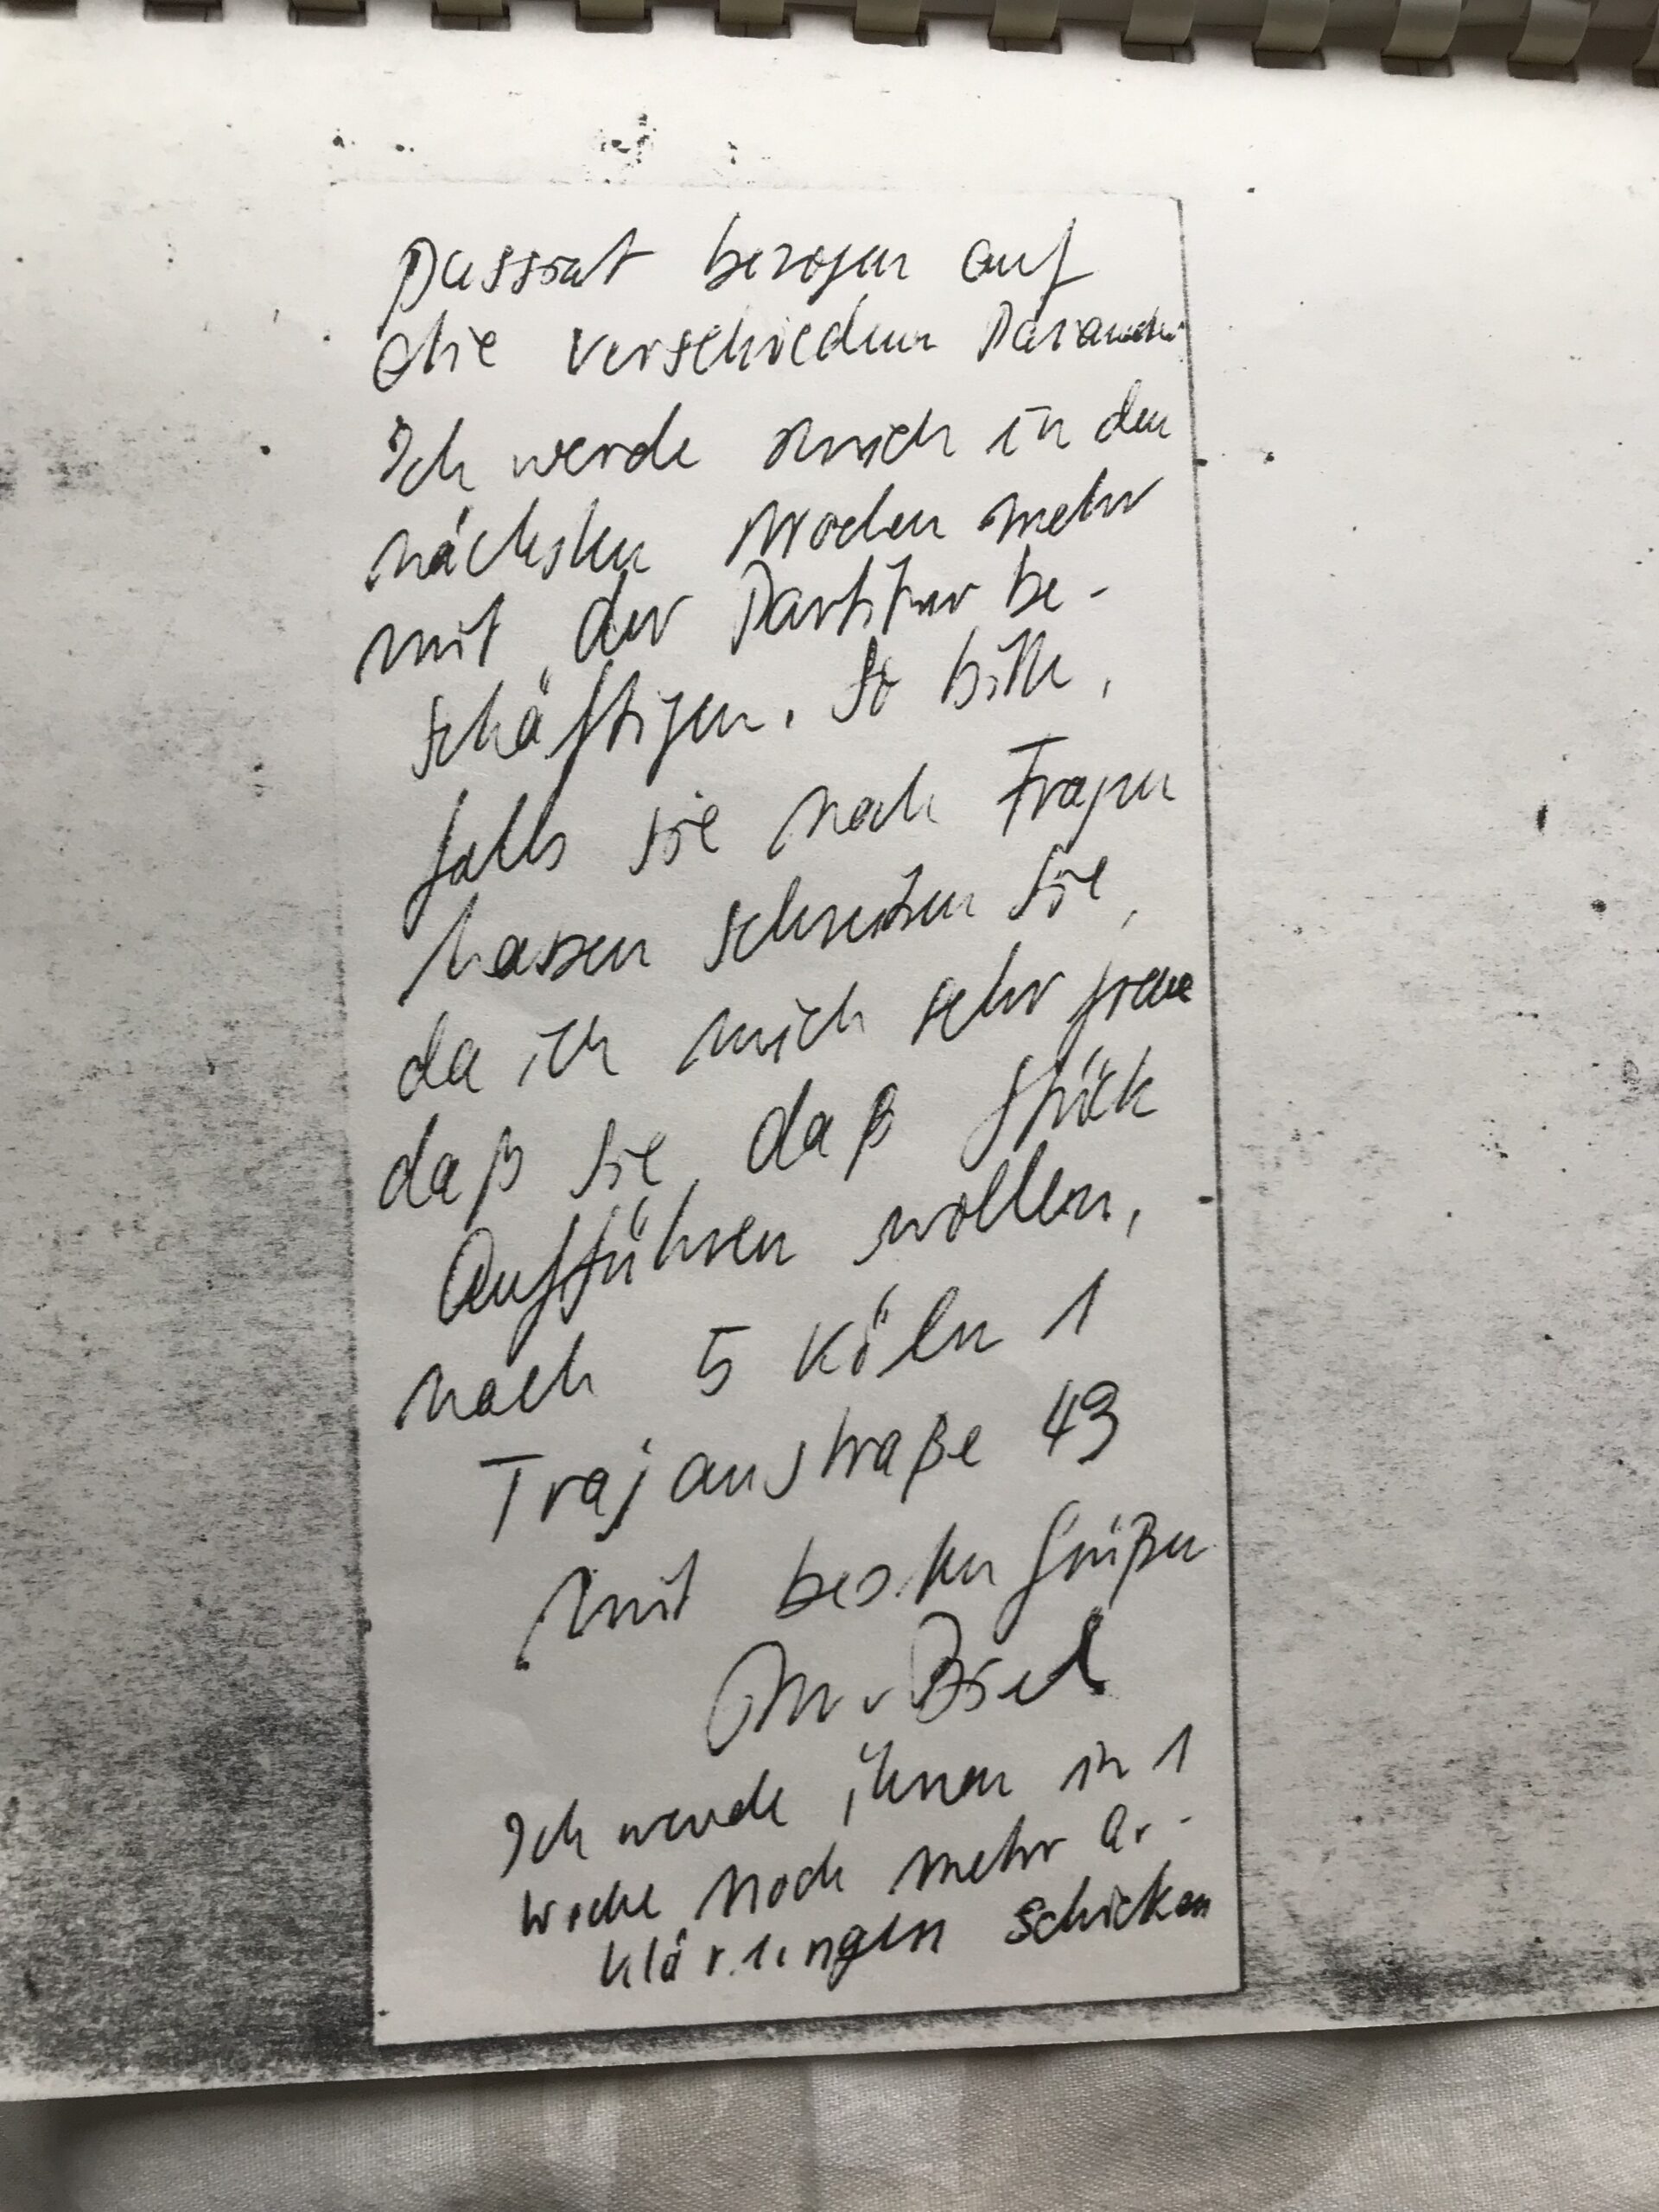 passiert bezogen auf
die verschiedenen Parameter
Ich werde mich in den
nächsten Wochen mehr
mit der Partitur be-
schäftigen. So bitte,
falls sie noch Fragen
haben schreiben Sie,
da ich mich sehr freue
daß sie daß Stück
Aufführen wollen,
nach 5 Köln 1
Trajanstraße 43
mit besten Grüßen
M v Biel
Ich werde ihnen in 1
Woche noch mehr Er-
klärungen schicken